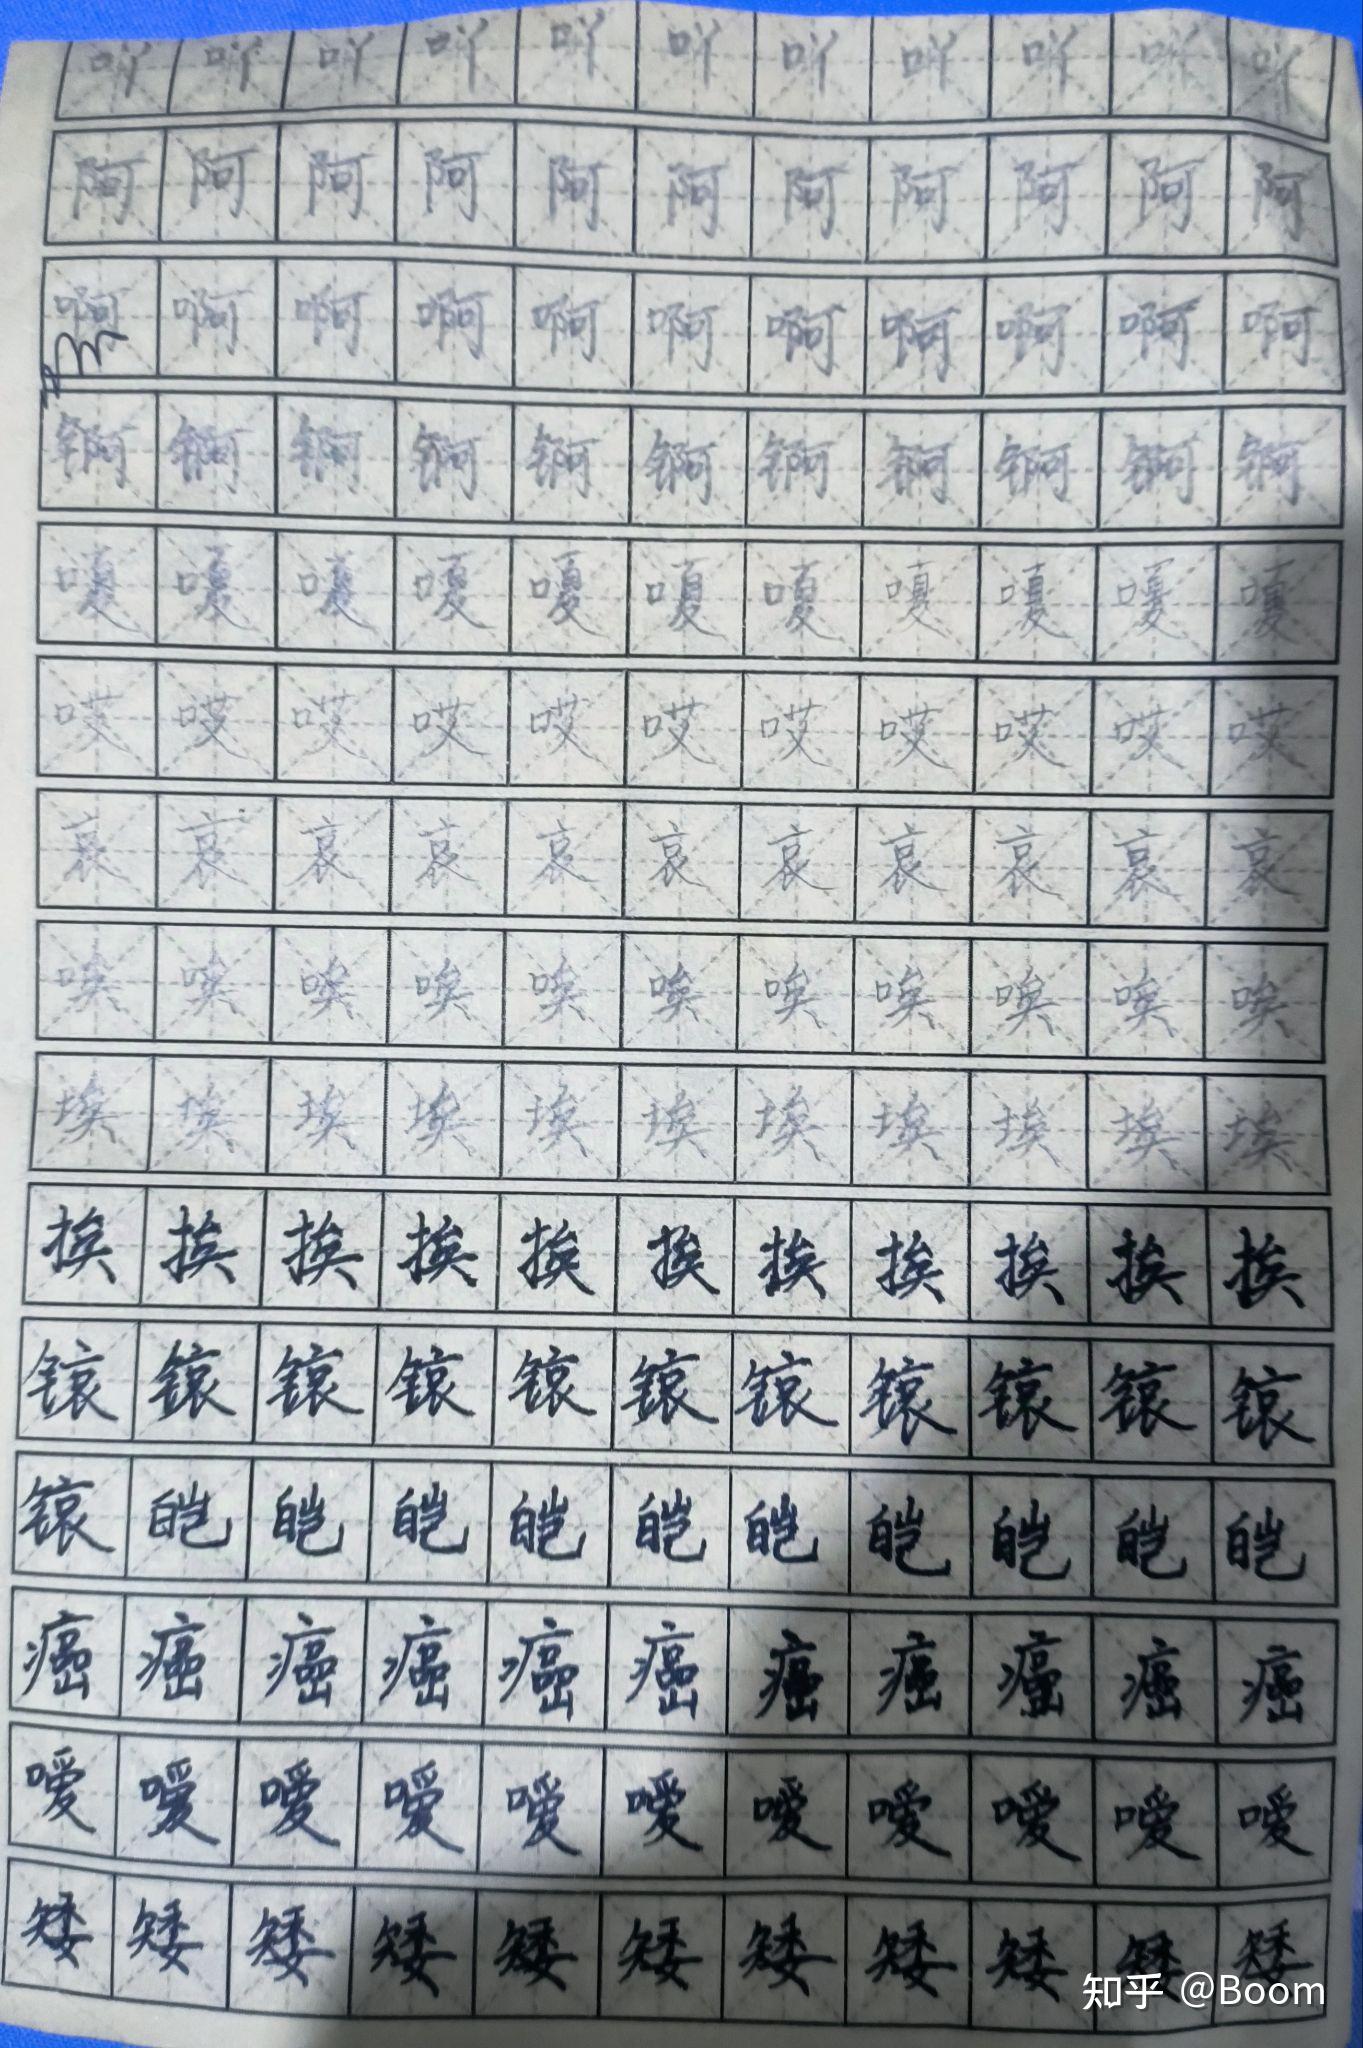 吖吖吖吖吖吖吖吖吖吖吖
阿阿阿阿阿阿阿阿阿阿阿
啊啊啊啊啊啊啊啊啊啊啊
锕锕锕锕锕锕锕锕锕锕锕
嗄嗄嗄嗄嗄嗄嗄嗄嗄嗄嗄
哎哎哎哎哎哎哎哎哎哎哎
哀哀哀哀哀哀哀哀哀哀哀
唉唉唉唉唉唉唉唉唉唉唉
埃埃埃埃埃埃埃埃埃埃埃
挨挨挨挨挨挨挨挨挨挨挨
锿锿锿锿锿锿锿锿锿锿锿
锿皑皑皑皑皑皑皑皑皑皑
癌癌癌癌癌癌癌癌癌癌癌
嗳嗳嗳嗳嗳嗳嗳嗳嗳嗳嗳
矮矮矮矮矮矮矮矮矮矮矮
知乎 @Boom